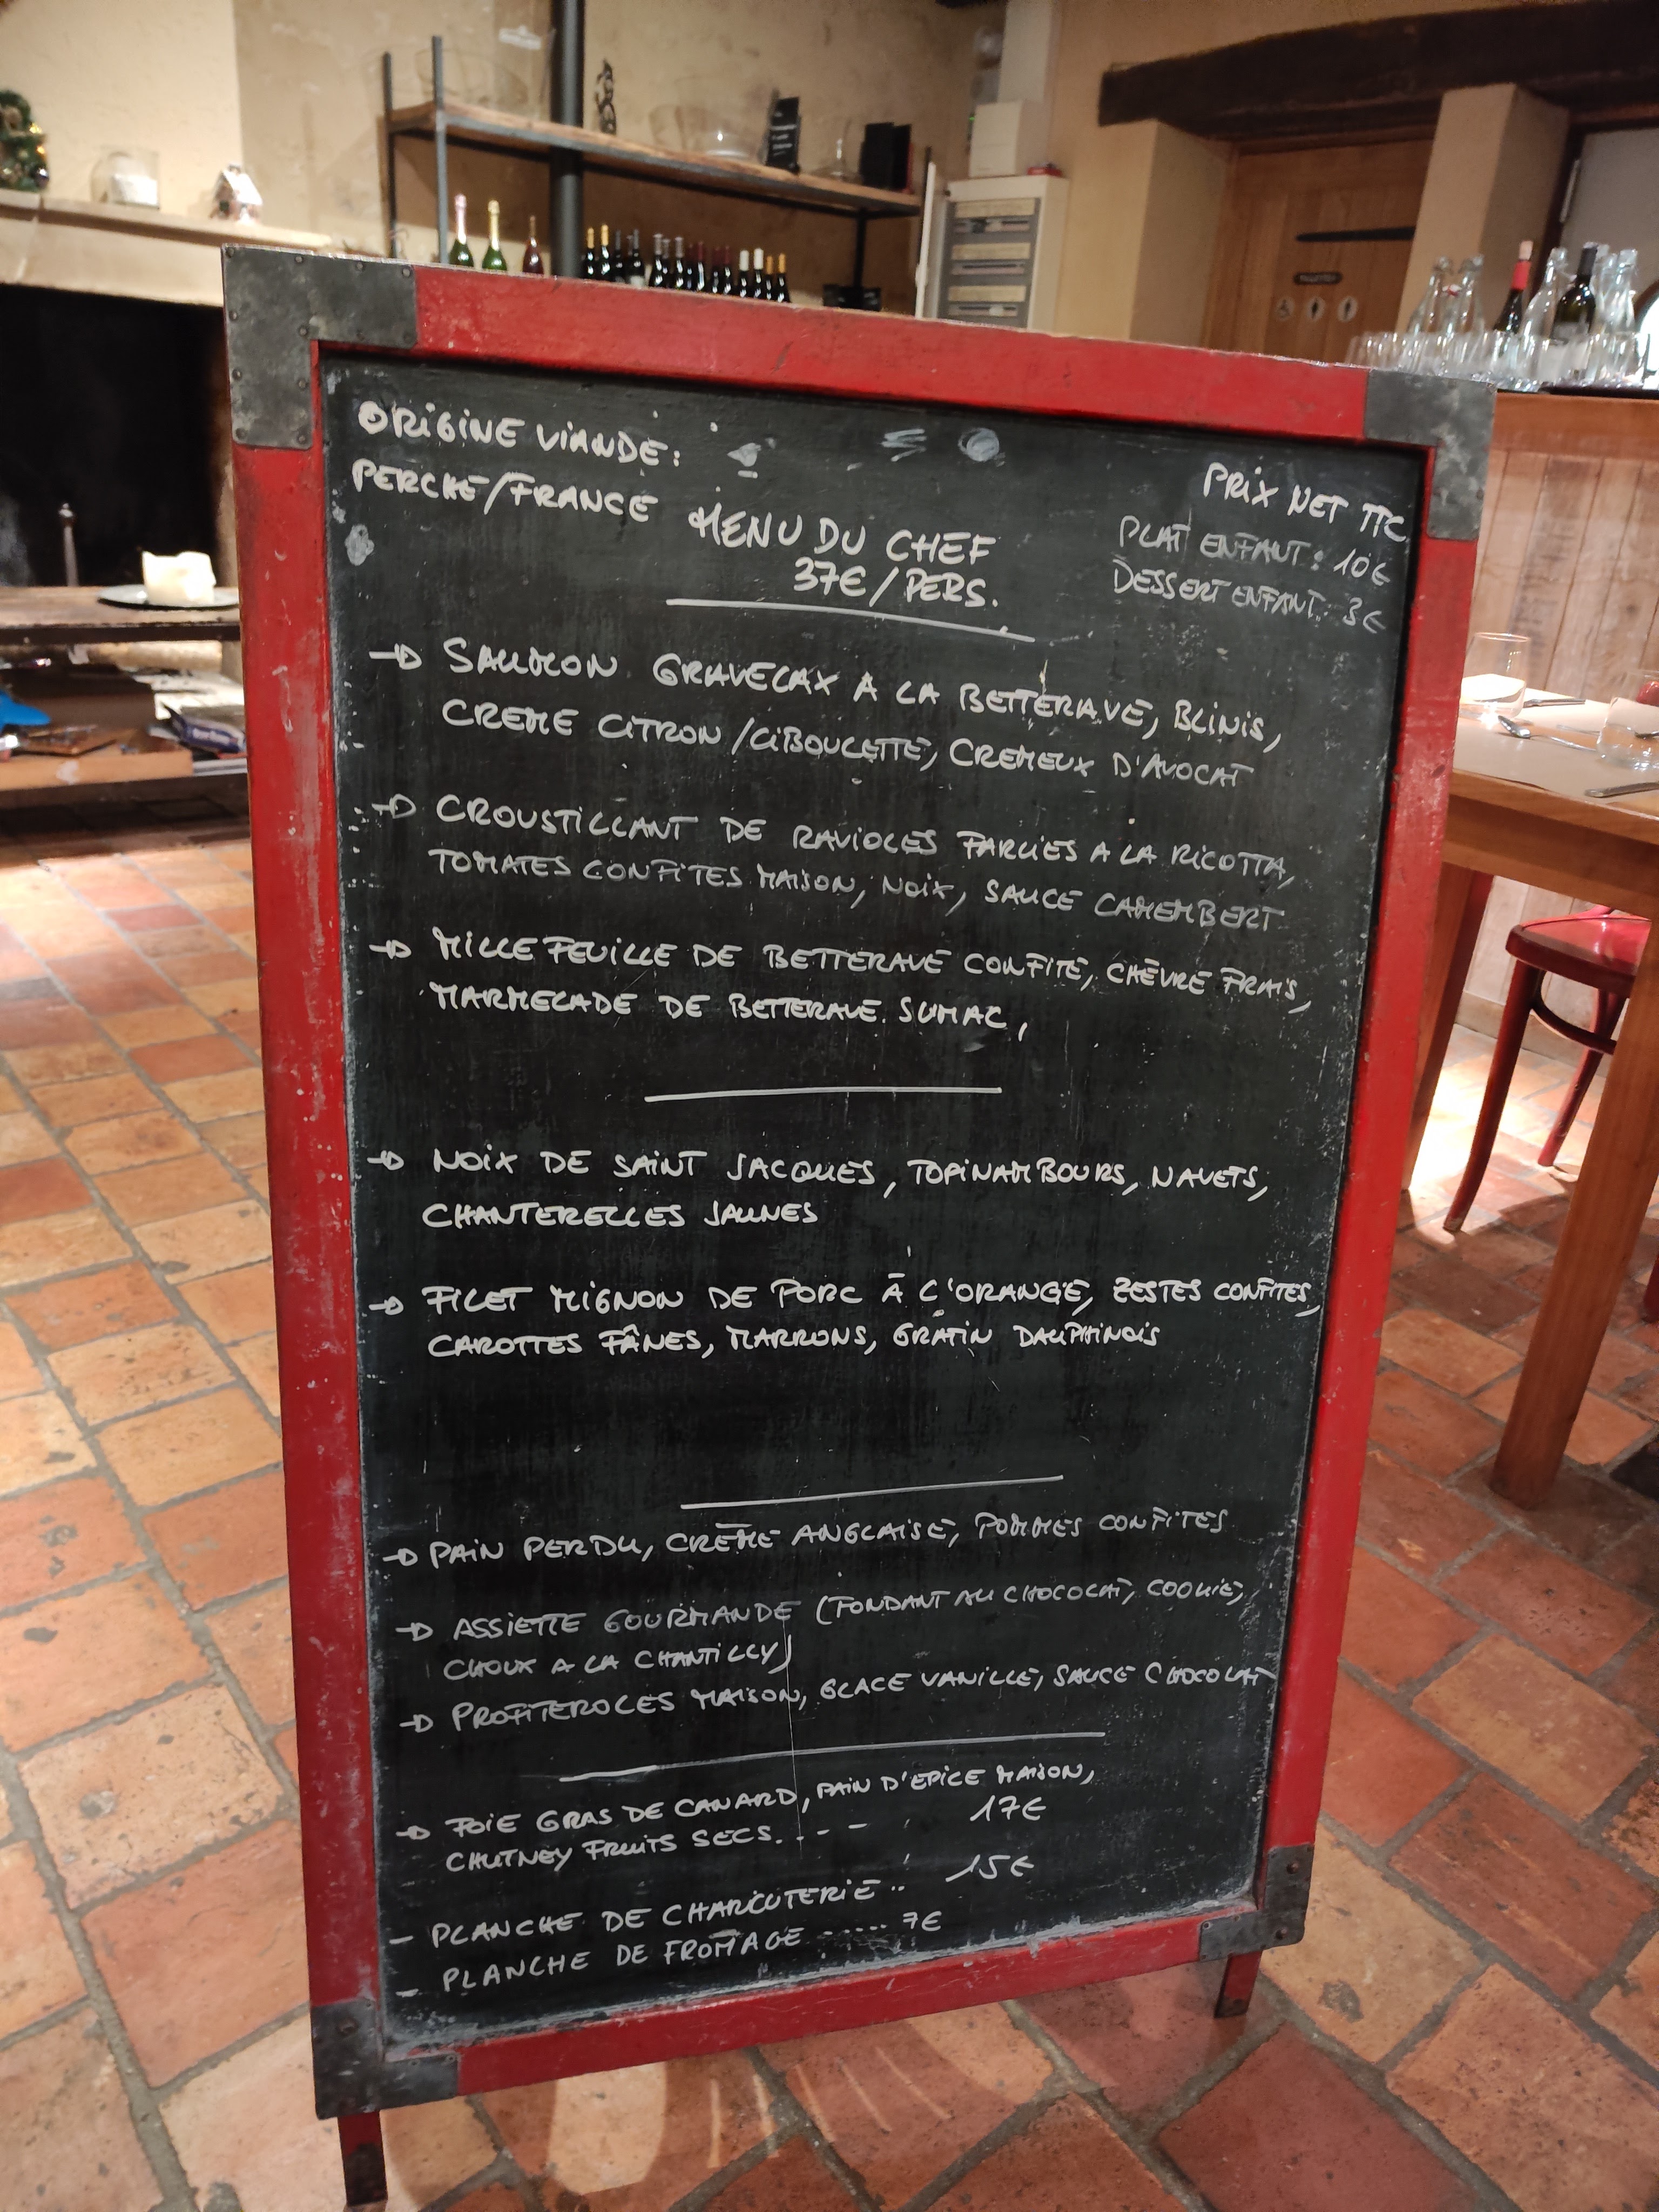 ORIGINE VIANDE:
PERCHE/FRANCE
PRIX NET TTC
PLAT ENFANT: 10€
DESSERT ENFANT: 3€
MENU DU CHEF
37€/PERS.
SAUMON GRAVELAX A LA BETTERAVE, BLINIS,
CREME CITRON/CIBOULETTE, CREMEUX D'AVOCAT
CROUSTILLANT DE RAVIOLES FARCIES A LA RICOTTA,
TOMATES CONFITES MAISON, NOIX, SAUCE CAMEMBERT
MILLE FEUILLE DE BETTERAVE CONFITE, CHÈVRE FRAIS,
MARMELADE DE BETTERAVE SUMAC,
NOIX DE SAINT JACQUES, TOPINAMBOURS, NAVETS,
CHANTERELLES JAUNES
FILET MIGNON DE PORC À L'ORANGE, ZESTES CONFITES,
CAROTTES FÂNES, MARRONS, GRATIN DAUPHINOIS
PAIN PERDU, CRÈME ANGLAISE, POMMES CONFITES
ASSIETTE GOURMANDE (FONDANT AU CHOCOLAT, COOKIE,
CHOUX A LA CHANTILLY)
PROFITEROLES MAISON, GLACE VANILLE, SAUCE CHOCOLAT
FOIE GRAS DE CANARD, PAIN D'EPICE MAISON,
CHUTNEY FRUITS SECS. - - - 17€
- PLANCHE DE CHARCUTERIE .. 15€
- PLANCHE DE FROMAGE ..... 7€